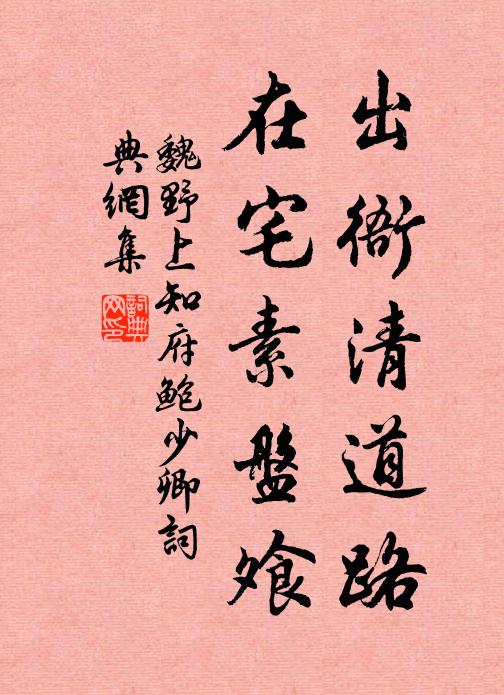 出衙清道路
在宅素盤飧
魏野上知府鮑少卿詞
典網集
詞典
网印